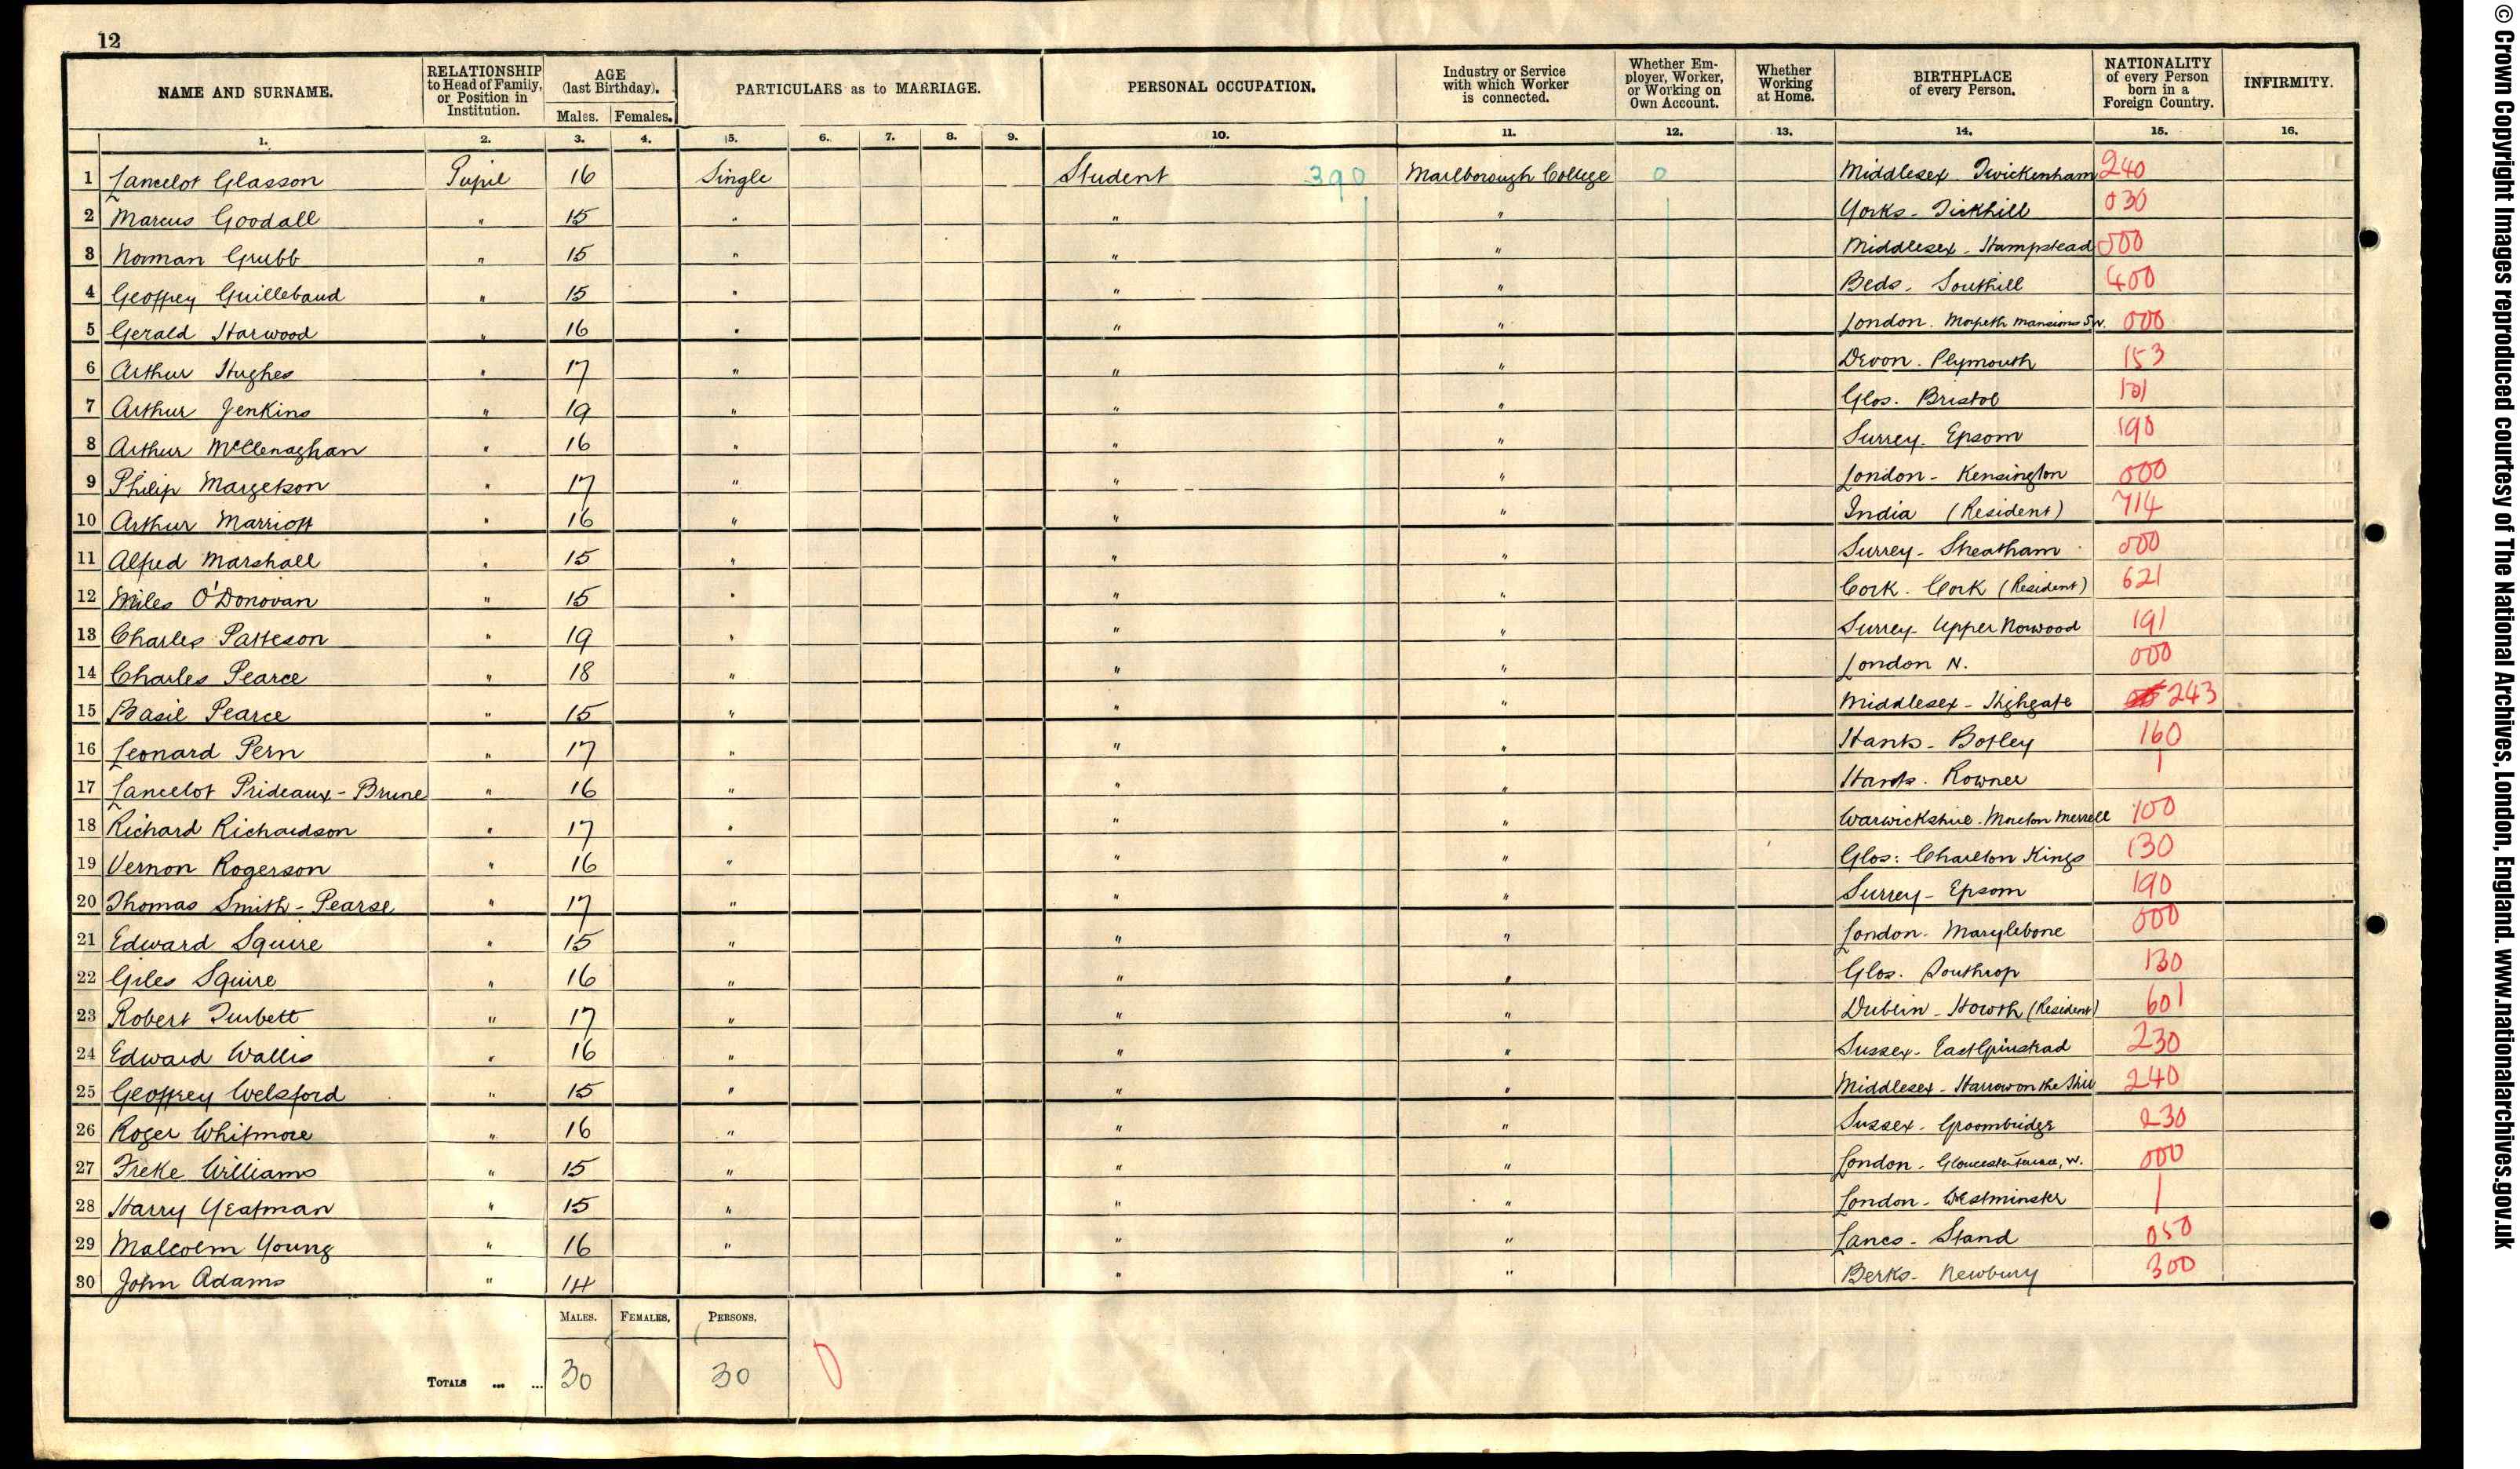 12
NAME AND SURNAME. RELATIONSHIP to Head of Family, or Position in Institution. AGE (last Birthday). Males. Females. PARTICULARS as to MARRIAGE. PERSONAL OCCUPATION. Industry or Service with which Worker is connected. Whether Employer, Worker, or Working on Own Account. Whether Working at Home. BIRTHPLACE of every Person. NATIONALITY of every Person born in a Foreign Country. INFIRMITY.
1. 2. 3. 4. 5. 6. 7. 8. 9. 10. 11. 12. 13. 14. 15. 16.
1 Lancelot Glasson Pupil 16 Single Student 390 Marlborough College 0 Middlesex Twickenham 240
2 Marcus Goodall " 15 " " " Yorks - Tickhill 030
3 Norman Grubb " 15 " " " Middlesex - Hampstead 000
4 Geoffrey Guillebaud " 15 " " " Beds. Southill 400
5 Gerald Harwood " 16 " " " London. Morpeth Mansions S.W. 000
6 Arthur Hughes " 17 " " " Devon. Plymouth 153
7 Arthur Jenkins " 19 " " " Glos. Bristol 101
8 Arthur McClenaghan " 16 " " " Surrey. Epsom 190
9 Philip Margetson " 17 " " " London - Kensington 000
10 Arthur Marriott " 16 " " " India (Resident) 714
11 Alfred Marshall " 15 " " " Surrey - Streatham 000
12 Miles O'Donovan " 15 " " " Cork. Cork (Resident) 621
13 Charles Patteson " 19 " " " Surrey - Upper Norwood 191
14 Charles Pearce " 18 " " " London N. 000
15 Basil Pearce " 15 " " " Middlesex - Highgate 243
16 Leonard Pern " 17 " " " Hants - Botley 160
17 Lancelot Prideaux-Brune " 16 " " " Hants. Rowner |
18 Richard Richardson " 17 " " " Warwickshire. Moreton Merrell 100
19 Vernon Rogerson " 16 " " " Glos: Charlton Kings 130
20 Thomas Smith-Pearse " 17 " " " Surrey - Epsom 190
21 Edward Squire " 15 " " " London. Marylebone 000
22 Giles Squire " 16 " " " Glos. Southrop 130
23 Robert Turbett " 17 " " " Dublin - Howth (Resident) 601
24 Edward Wallis " 16 " " " Sussex - East Grinstead 230
25 Geoffrey Welsford " 15 " " " Middlesex - Harrow on the Hill 240
26 Roger Whitmore " 16 " " " Sussex - Groombridge 230
27 Freke Williams " 15 " " " London - Gloucester Terrace, W. 000
28 Harry Yeatman " 15 " " " London - Westminster |
29 Malcolm Young " 16 " " " Lancs - Stand 050
30 John Adams " 14 " " Berks - Newbury 300
MALES. FEMALES. PERSONS.
TOTALS ... ... 30 30 0
© Crown Copyright Images reproduced courtesy of The National Archives, London, England. www.nationalarchives.gov.uk